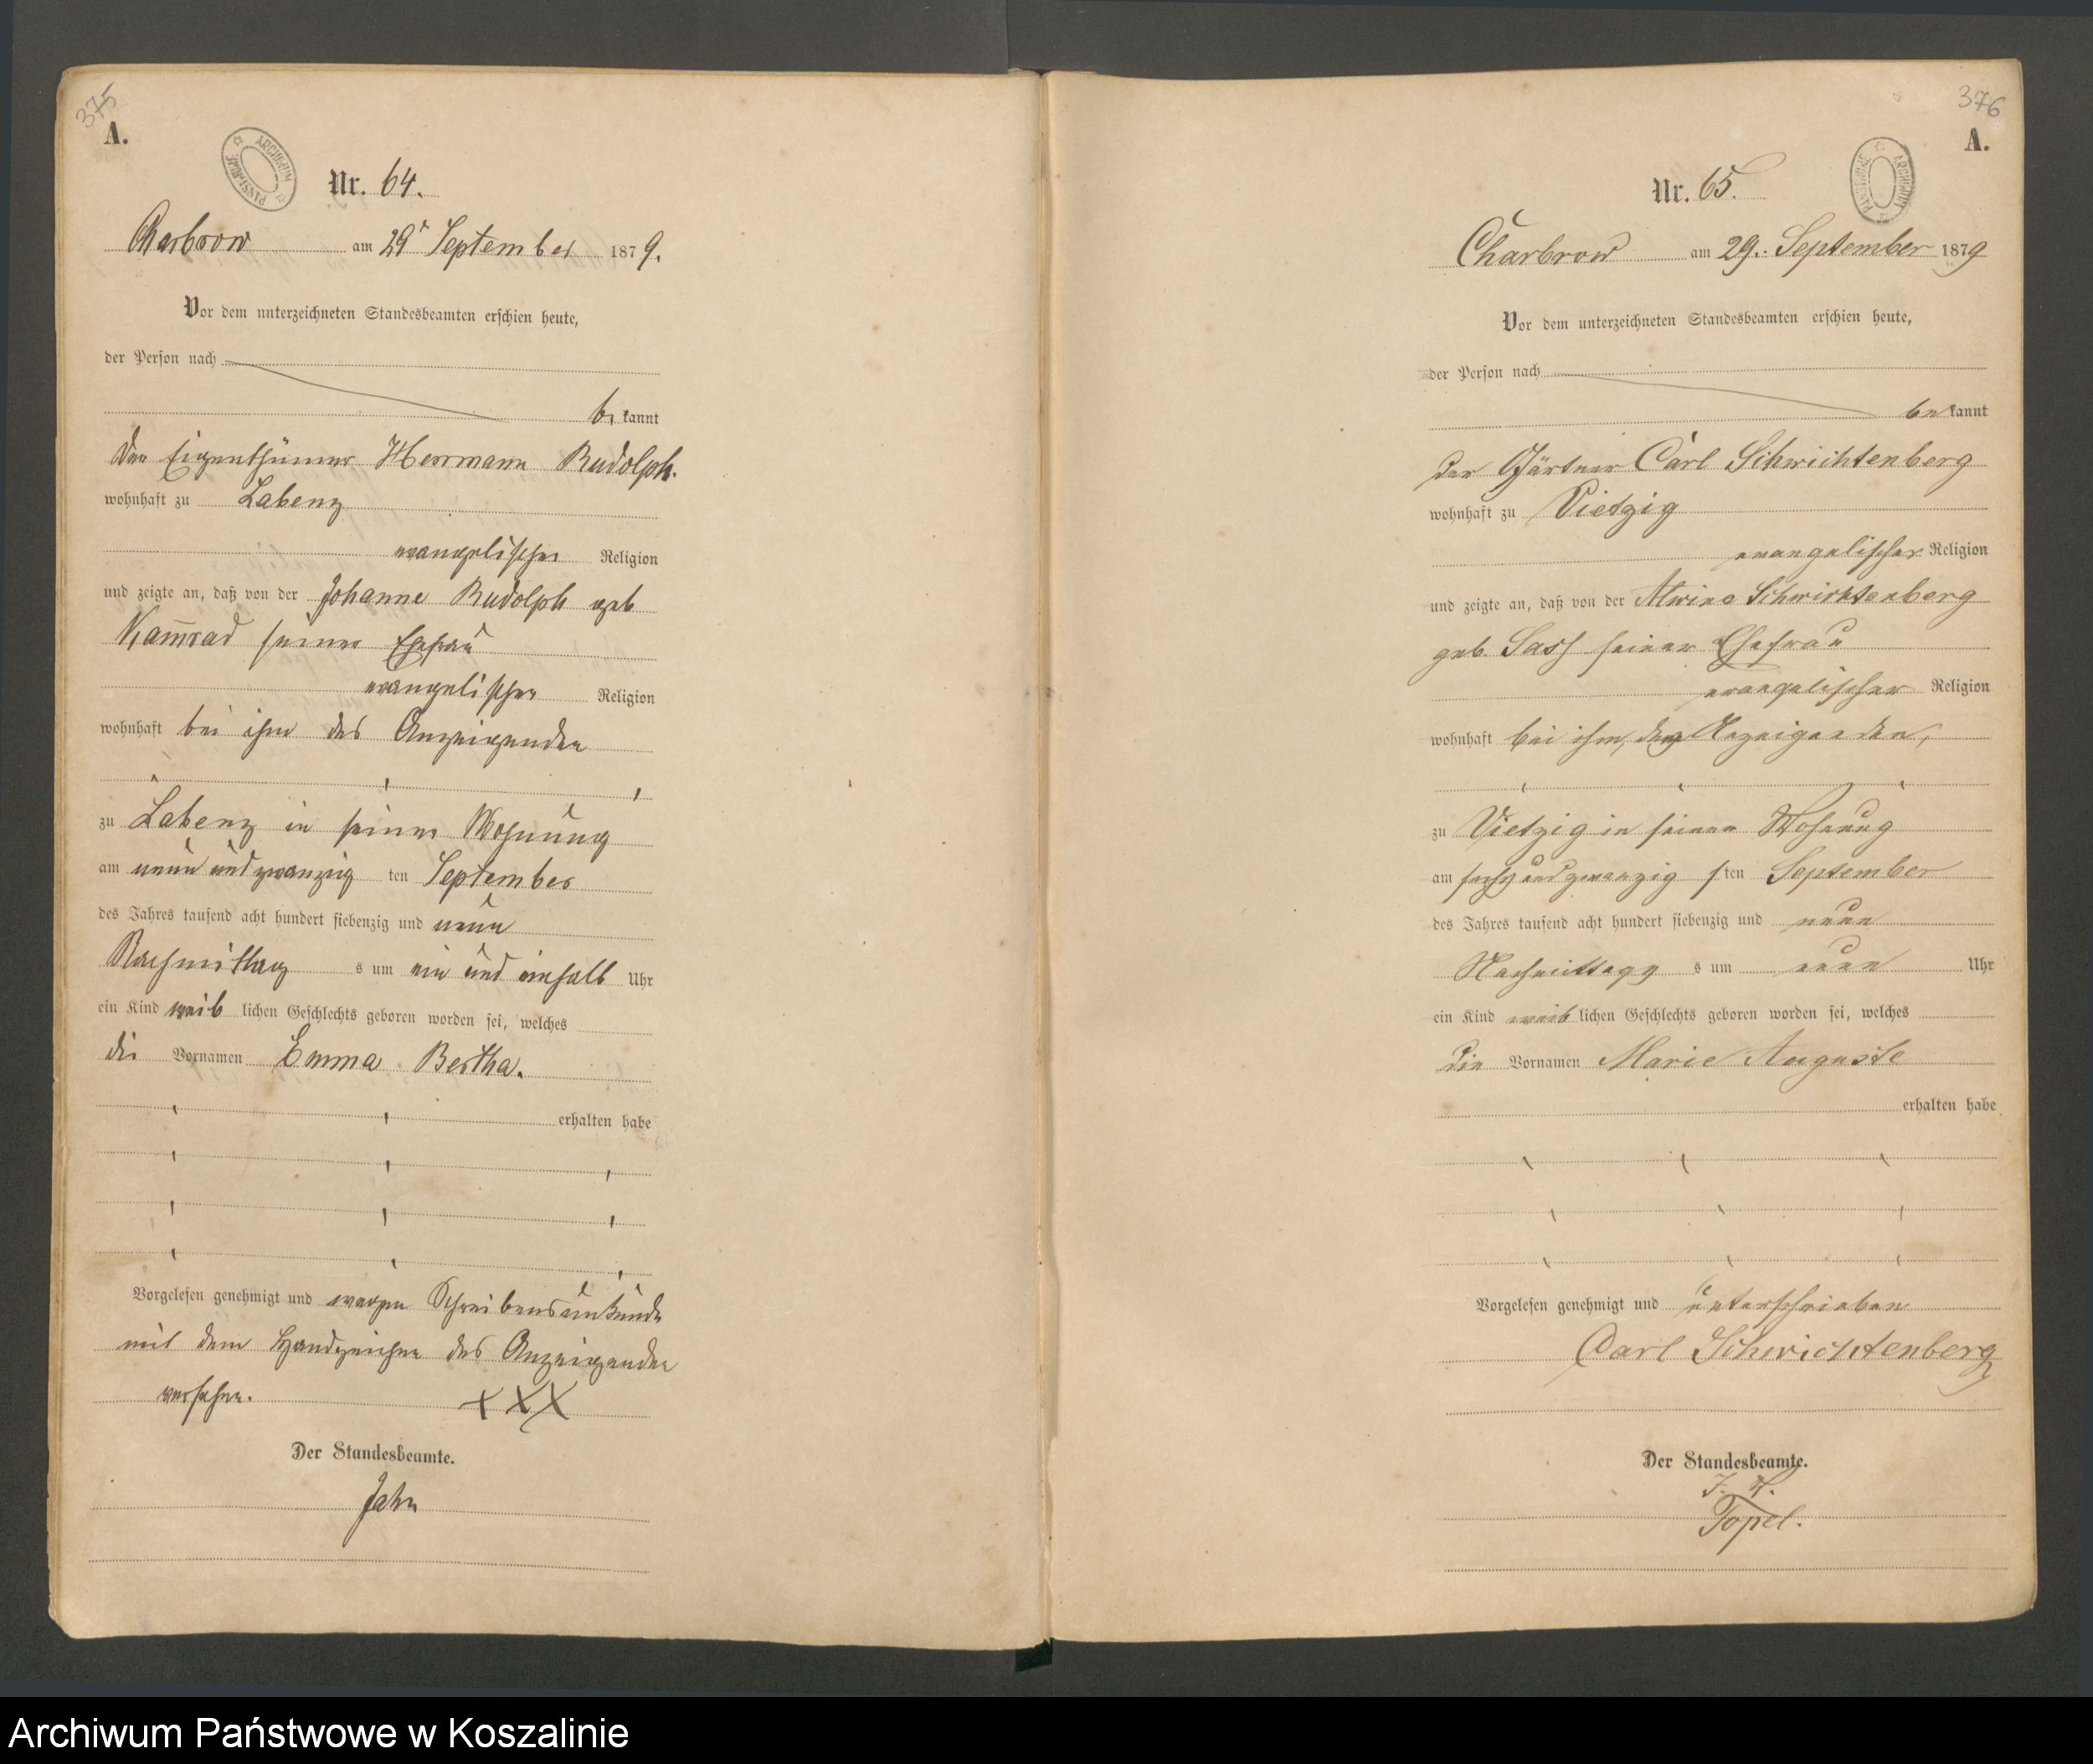 375
A.
ARCHIWUM PAŃSTWOWE
Nr. 64.
Charbrow am 29t September 1879.
Vor dem unterzeichneten Standesbeamten erschien heute,
der Person nach
be kannt
der Eigenthümer Herrmann Rudolph.
wohnhaft zu Labenz
evangelischer Religion
und zeigte an, daß von der Johanne Rudolph geb
Kam̄rad seiner Ehefrau
evangelischer Religion
wohnhaft bei ihm des Anzeigenden
zu Labenz in seiner Wohnung
am neun und zwanzig ten September
des Jahres tausend acht hundert siebenzig und neun
Nachmittag s um ein und einhalb Uhr
ein Kind weib lichen Geschlechts geboren worden sei, welches
die Vornamen Emma Bertha.
erhalten habe
Vorgelesen genehmigt und wegen Schreibensunkunde
mit dem Handzeichen des Anzeigenden
versehen. XXX
Der Standesbeamte.
Jahn
376
A.
ARCHIWUM PAŃSTWOWE
Nr. 65.
Charbrow am 29. September 1879
Vor dem unterzeichneten Standesbeamten erschien heute,
der Person nach
be kannt
der Gärtner Carl Schwichtenberg
wohnhaft zu Vietzig
evangelischer Religion
und zeigte an, daß von der Alwine Schwichtenberg
geb. Sass seiner Ehefrau
evangelischer Religion
wohnhaft bei ihm, dem Anzeigenden,
zu Vietzig in seiner Wohnung
am sechs und zwanzig sten September
des Jahres tausend acht hundert siebenzig und neun
Nachmittags s um neun Uhr
ein Kind weib lichen Geschlechts geboren worden sei, welches
die Vornamen Marie Auguste
erhalten habe
Vorgelesen genehmigt und unterschrieben
Carl Schwichtenberg
Der Standesbeamte.
J. V.
Topel.
Archiwum Państwowe w Koszalinie